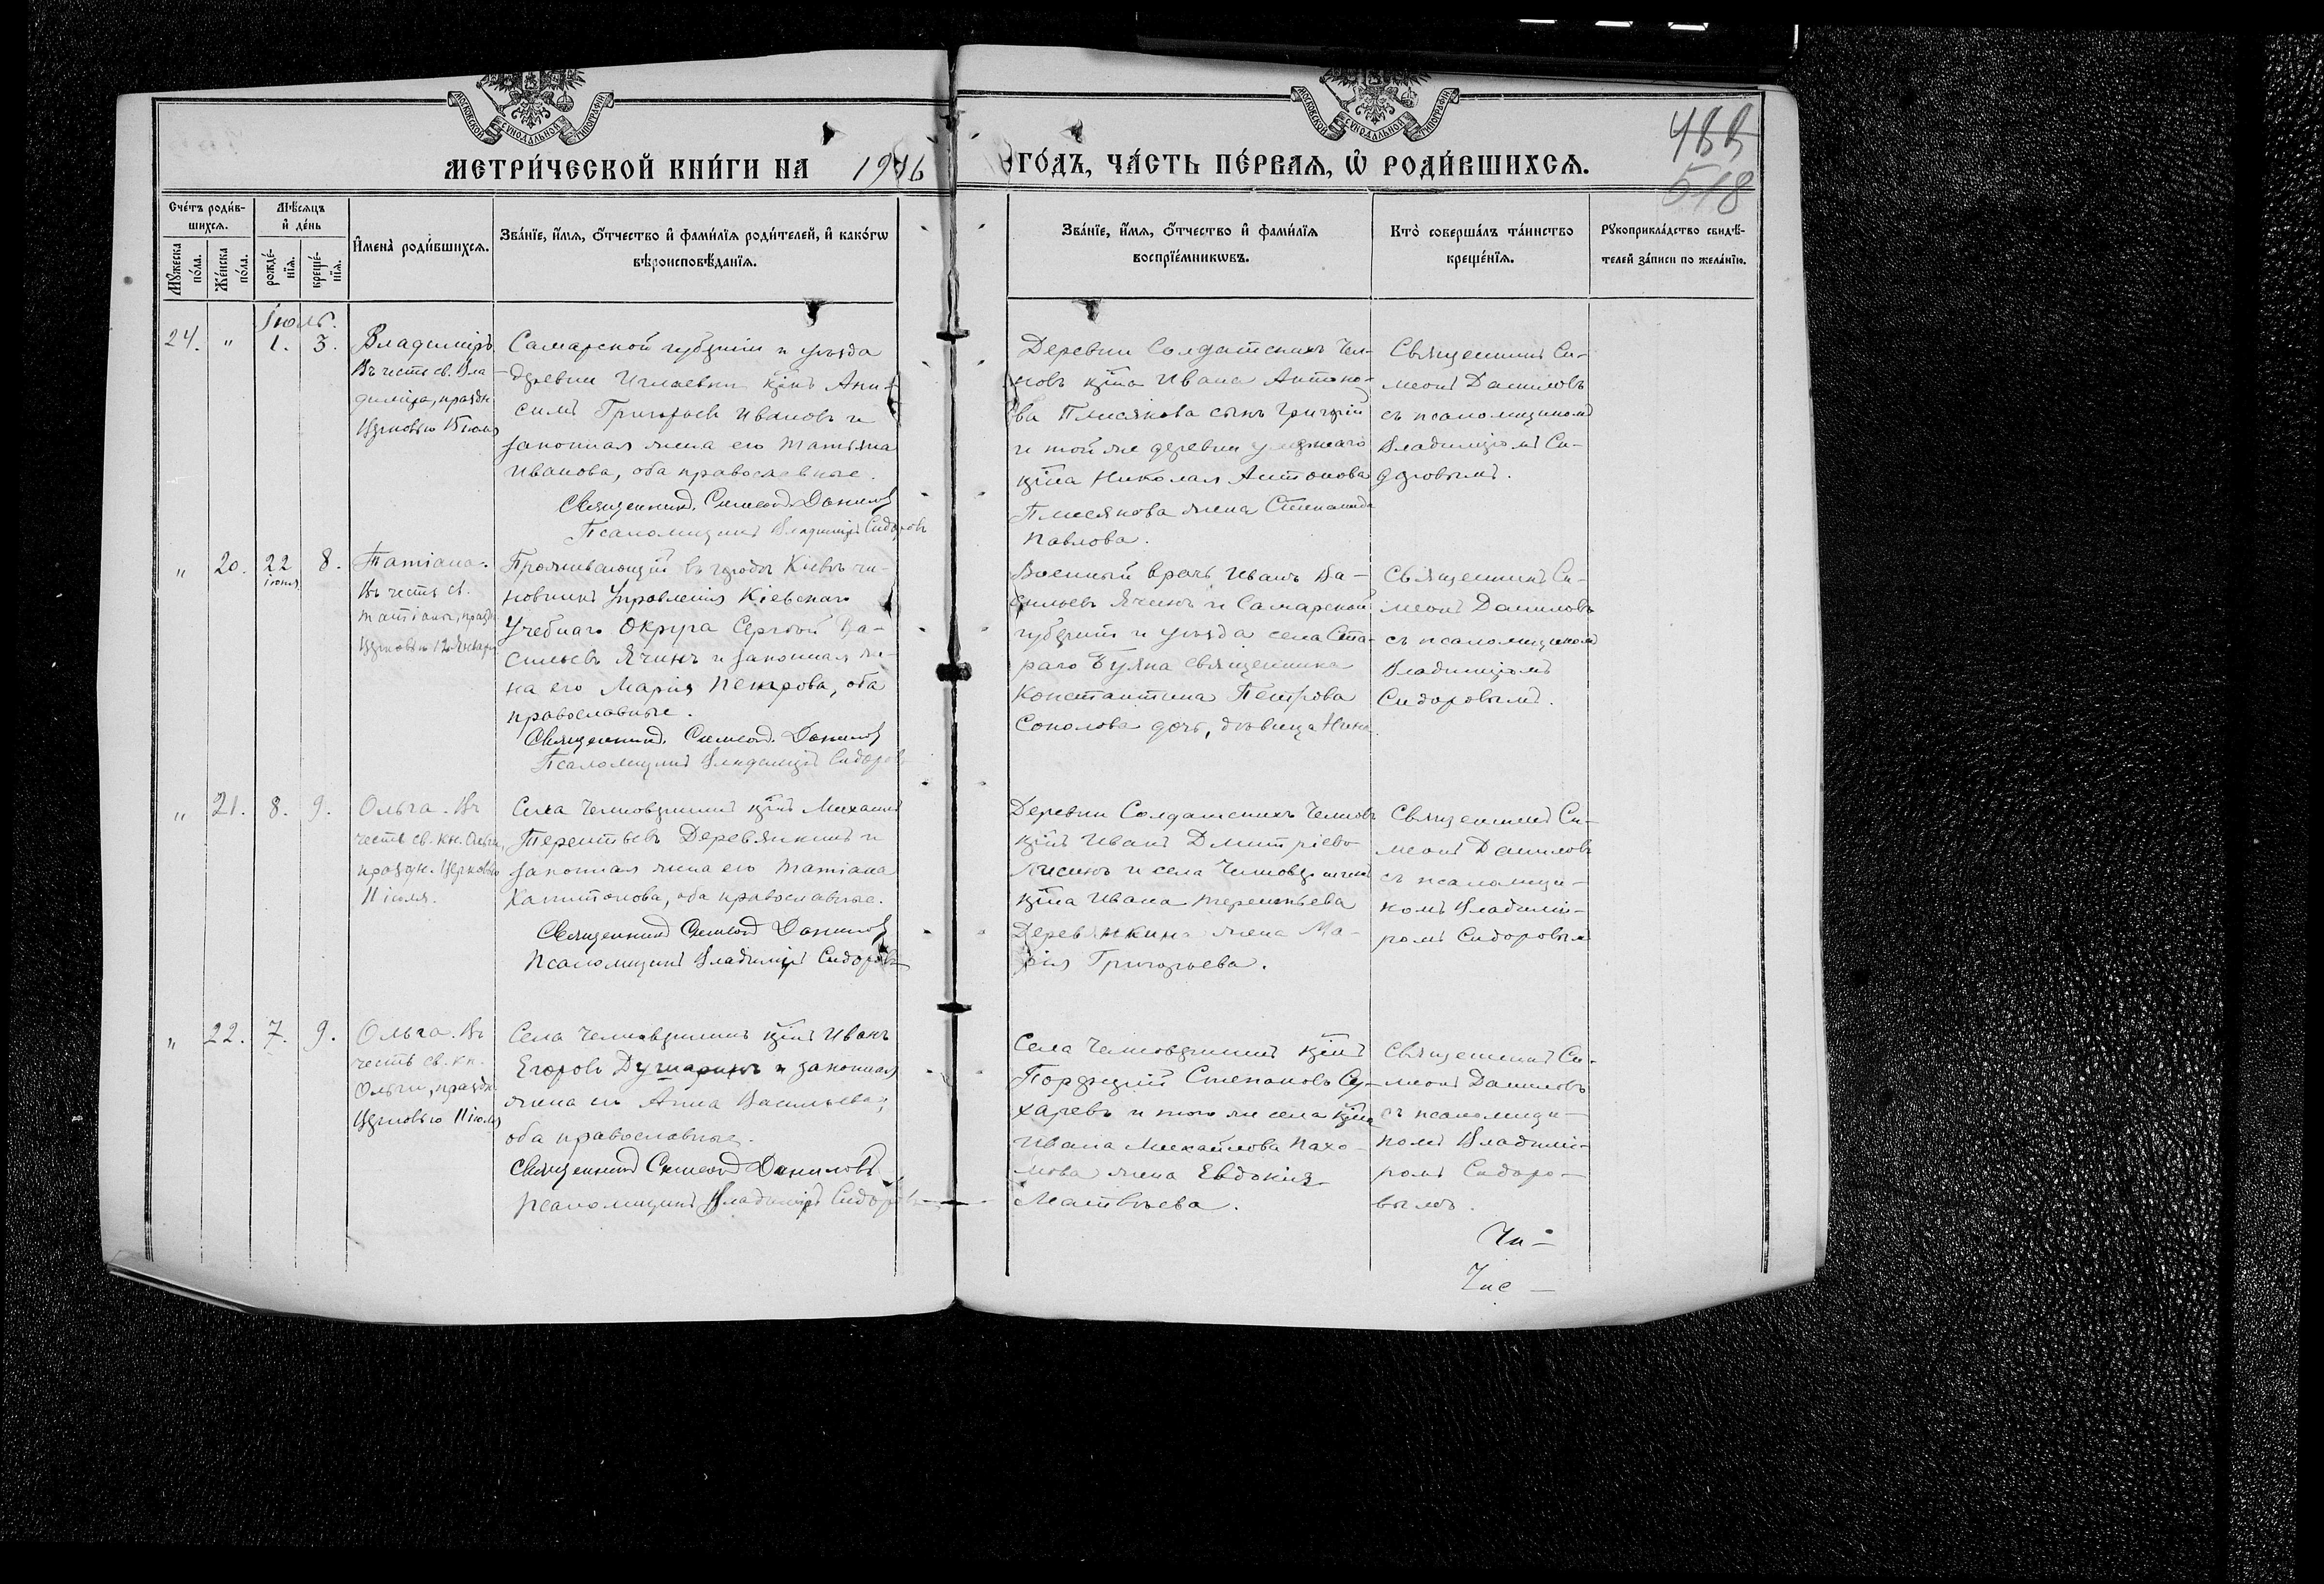 МОСКОВСКОЙ СѴНОДАЛЬНОЙ ТИПОГРАФІИ
МОСКОВСКОЙ СѴНОДАЛЬНОЙ ТИПОГРАФІИ
518
МЕТРИ́ЧЕСКОЙ КНИ́ГИ НА 1916 ГО́ДЪ, ЧА́СТЬ ПЕ́РВАЯ, Ѡ҆ РОДИ́ВШИХСЯ.
Сче́тъ роди́в-
шихся.
Мꙋ́жеска по́ла.
Же́нска по́ла.
Мѣ́сяцъ
и҆ де́нь
рожде́-
нїя.
креще́-
нїя.
И҆мена̀ роди́вшихся.
Зва́нїе, и҆́мя, ѻ҆́тчество и҆ фами́лїя роди́телей, и҆ како́гѡ
вѣроисповѣ́данїя.
Зва́нїе, и҆́мя, ѻ҆́тчество и҆ фами́лїя
воспрїе́мникѡвъ.
Кто̀ соверша́лъ та́инство
креще́нїя.
Рꙋкоприкла́дство свидѣ́-
телей за́писи по жела́нїю.
Іюль.
24. " 1. 3.
Владимиръ
Въ честь св. Вла-
димира, праздн.
Церковью 15 іюля
Самарской губерніи и уѣзда
деревни кр̃нъ Ани-
симъ Григорьевъ Ивановъ и
законная жена его Татьяна
Иванова, оба православные.
Священникъ Симеонъ Даниловъ
Псаломщикъ Владимиръ Сидоровъ
Деревни Солдатскихъ Чел-
новъ кр̃на Ивана Антоно-
ва сынъ Григорій
и той же деревни
кр̃на Николая Антонова
жена Степанида
Павлова.
Священникъ Си-
меонъ Даниловъ
съ псаломщикомъ
Владимиромъ Си-
доровымъ.
" 20. 22 іюня 8.
Татіана.
Въ честь св.
Татіаны, праздн.
Церковью 12 Января
Проживающій въ городѣ Кіевѣ чи-
новникъ Управленія Кіевскаго
Учебнаго Округа Сергѣй Ва-
сильевъ Ячинъ и законная же-
на его Марія Петрова, оба
православные.
Священникъ Симеонъ Даниловъ
Псаломщикъ Владимиръ Сидоровъ
Военный врачъ Иванъ Ва-
сильевъ Ячинъ и Самарской
губерніи и уѣзда села Ста-
раго Буяна священника
Константина Петрова
Соколова дочь, дѣвица Нина.
Священникъ Си-
меонъ Даниловъ
съ псаломщикомъ
Владимиромъ
Сидоровымъ.
" 21. 8. 9.
Ольга. Въ
честь св. кн. Ольги,
праздн. Церковью
11 іюля.
Села Челновершинъ кр̃нъ Михаилъ
Терентьевъ Деревянкинъ и
законная жена его Татіана
Капитонова, оба православные.
Священникъ Симеонъ Даниловъ
Псаломщикъ Владимиръ Сидоровъ
Деревни Солдатскихъ Челновъ
кр̃нъ Иванъ Дмитріевъ
Лисинъ и села Челновершинъ
кр̃на Ивана Терентьева
Деревянкина жена Ма-
рія Григорьева.
Священникъ Си-
меонъ Даниловъ
съ псаломщи-
комъ Владими-
ромъ Сидоровымъ
" 22. 7. 9.
Ольга. Въ
честь св. кн.
Ольги, праздн.
Церковью 11 іюля
Села Челновершинъ кр̃нъ Иванъ
Егоровъ и законная
жена его Анна Васильева,
оба православные.
Священникъ Симеонъ Даниловъ
Псаломщикъ Владимиръ Сидоровъ
Села Челновершинъ кр̃нъ
Порфирій Степановъ Су-
харевъ и того же села кр̃на
Ивана Михайлова Пахо-
мова жена Евдокія
Матвѣева.
Священникъ Си-
меонъ Даниловъ
съ псаломщи-
комъ Владими-
ромъ Сидоро-
вымъ.